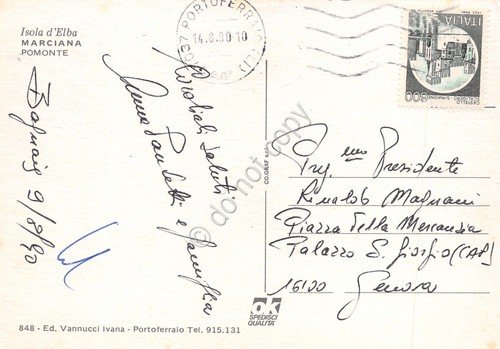 Isola d'Elba
MARCIANA
POMONTE
57037 PORTOFERRAIO (LI)
14.8.90 10
ITALIA
600
9/8/90
Cordiali saluti
e famiglia
Preg.mo Presidente
Rinaldo Magnani
Piazza della Mercanzia
Palazzo S. Giorgio (CAP)
16100 Genova
do not copy
OK
SPEDISCI
QUALITA'
848 - Ed. Vannucci Ivana - Portoferraio Tel. 915.131